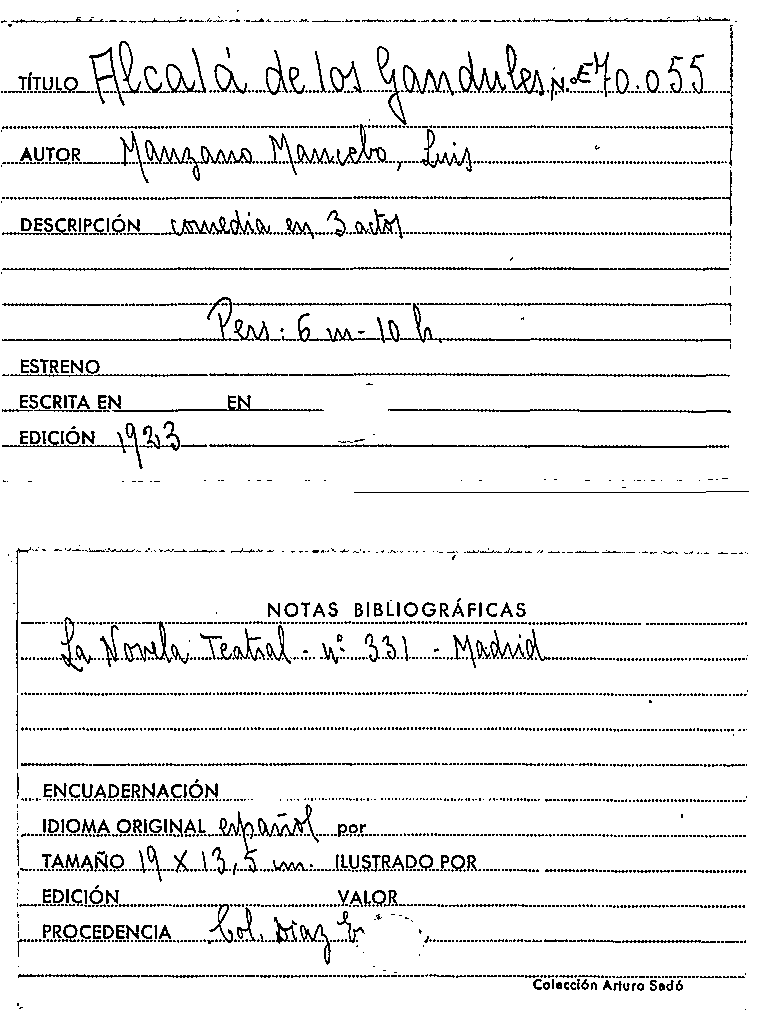 TÍTULO Alcalá de los Gandules N.º E 70.055
AUTOR Manzano Mancebo, Luis
DESCRIPCIÓN comedia en 3 actos
Pers: 6 m - 10 h.
ESTRENO
ESCRITA EN EN
EDICIÓN 1923
NOTAS BIBLIOGRÁFICAS
La Novela Teatral - nº 331 - Madrid
ENCUADERNACIÓN
IDIOMA ORIGINAL español por
TAMAÑO 19 X 13,5 cm. ILUSTRADO POR
EDICIÓN VALOR
PROCEDENCIA Col. Díaz
Colección Arturo Sedó